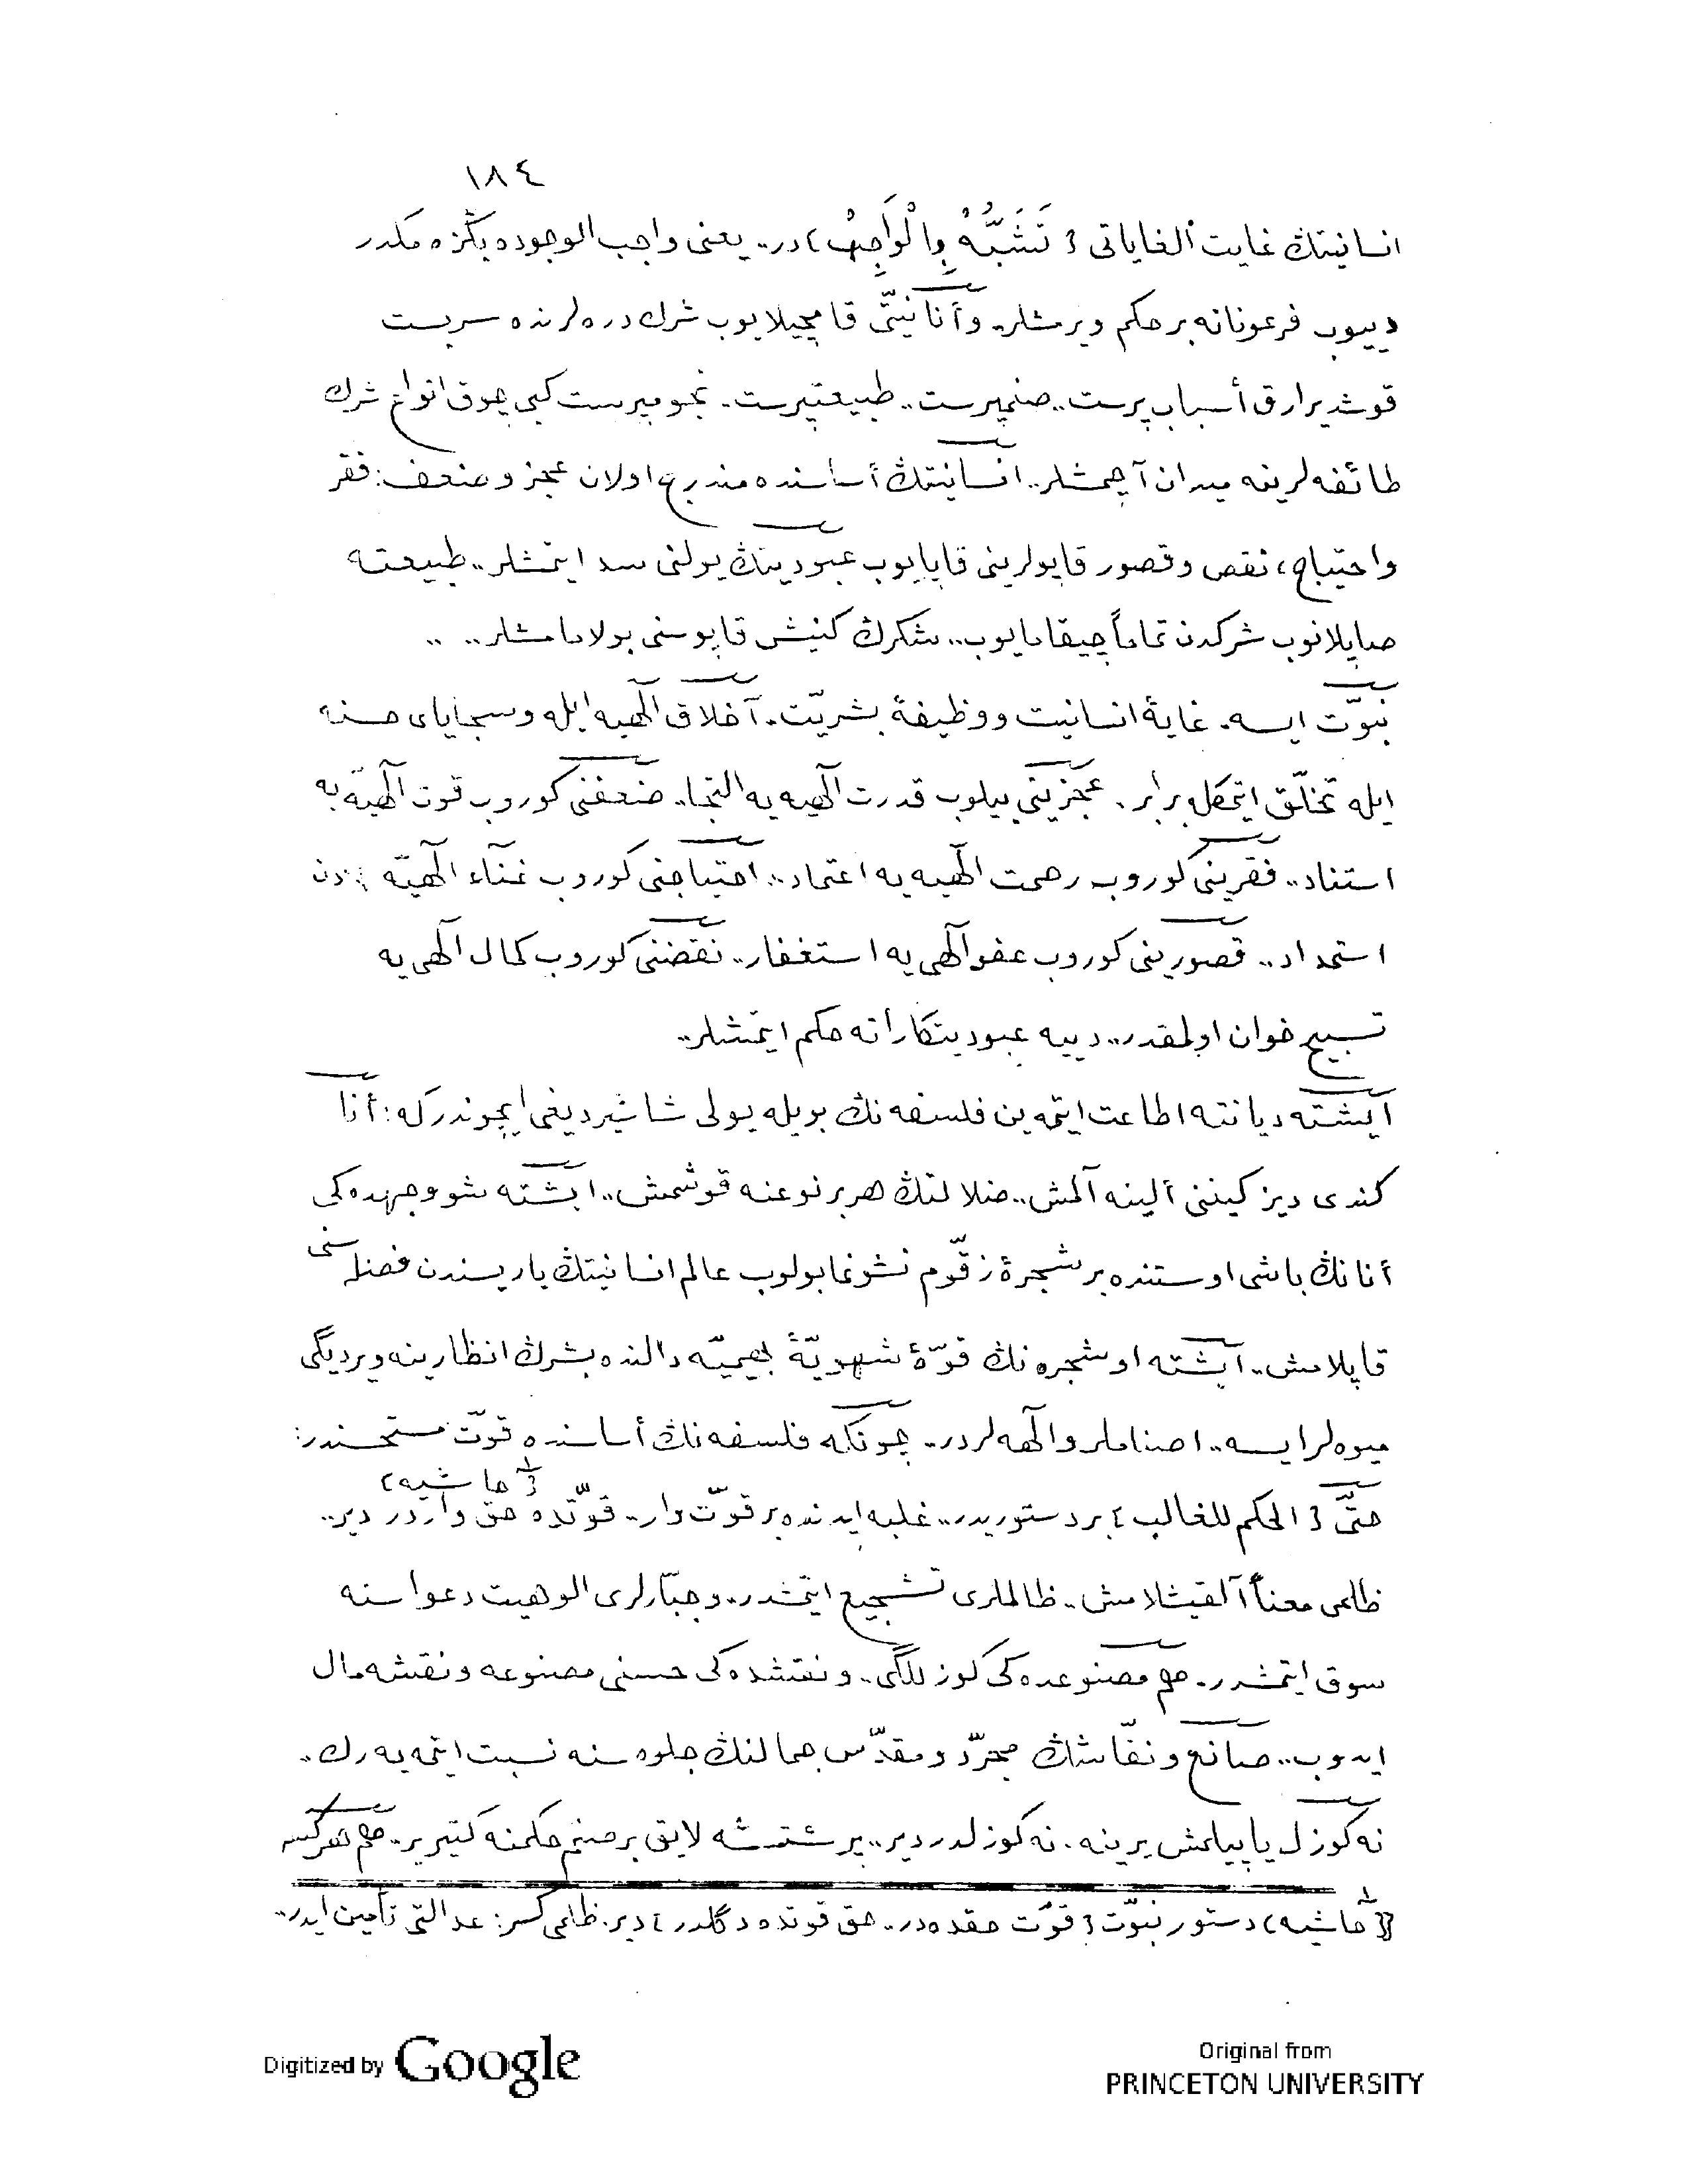 ١٨٤
انسانيتڭ غايت الغاياتى { تَشَبُّهْ بِالْوَاجِبْ } در.. يعنى واجب الوجوده بڭزه مكدر
دييوب فرعونانه بر حكم ويرمشلر. و أنانيتّى قامچيلايوب شرك دره لرنده سربست
قوشديرارق أسباب پرست.. صنمپرست.. طبيعتپرست. نجومپرست كبى چوق انواع شرك
طائفه لرينه ميدان آچمشلر.. انسانيتڭ أساسنده مندرج اولان عجز و ضعف: فقر
واحتياج، نقص و قصور قاپولرينى قاپايوب عبوديتڭ يولنى سد ايتمشلر.. طبيعته
صاپلانوب شركدن تماماً چيقامايوب.. شكرڭ كنيش قاپوسنى بولامامشلر.. ..
نبوّت ايسه. غايۀ انسانيت و وظيفۀ بشريّت. آخلاق الٓهيه ايله و سجاياى حسنه
ايله تخلّق ايتمكله برابر. عجزينى بيلوب قدرت الٓهيه يه التجا.. ضعفنى كوروب قوت الٓهيّه يه
استناد.. فقرينى كوروب رحمت الٓهيه يه اعتماد.. احتياجنى كوروب غنآء الٓهيّه دن
استمداد.. قصورينى كوروب عفو الٓهى يه استغفار.. نقصنى كوروب كمال الٓهى يه
تسبيح خوان اولمقدر.. دييه عبوديتكارانه حكم ايتمشلر..
ايشته ديانته اطاعت ايتمه ين فلسفه نڭ بويله يولى شاشيرديغى ايچوندركه: أنا
كندى ديزكيننى ألينه آلمش.. ضلالتڭ هر بر نوعنه قوشمش.. ايشته شو وجهده كى
أنانڭ باشى اوستنده بر شجرۀ زقّوم نشونما بولوب عالم انسانيتڭ ياريسندن فضله سنى
قاپلامش.. ايشته او شجره نڭ قوّۀ شهويّۀ بهيميّه دالنده بشرڭ انظارينه ويرديگى
ميوه لر ايسه.. اصناملر و الٓهه لردر.. چونكه فلسفه نڭ أساسنده قوّت مستحسندر:
حتَّى { الحكم للغالب } بر دستوريدر.. غلبه ايدنده بر قوّت وار.. قوّتده حق واردر دير.. {١ حاشيه}
ظلمى معناً آلقيشلامش.. ظالملرى تشجيع ايتمشدر.. و جبّارلرى الوهيت دعواسنه
سوق ايتمشدر. هم مصنوعده كى كوزللگى.. و نقشده كى حسنى مصنوعه و نقشه مال
ايدوب.. صانع و نقّاشڭ مجرّد و مقدّس جمالنڭ جلوه سنه نسبت ايتمه يه رك..
نه كوزل ياپيلمش يرينه. نه كوزلدر دير.. پرستشه لايق بر صنم حكمنه كتيرير. هم هركسه
{١ حاشيه} دستور نبوّت { قوّت حقده در.. حق قوتده دگلدر } دير. ظلمى كسر: عدالتى تأمين ايدر..
Digitized by Google
Original from
PRINCETON UNIVERSITY